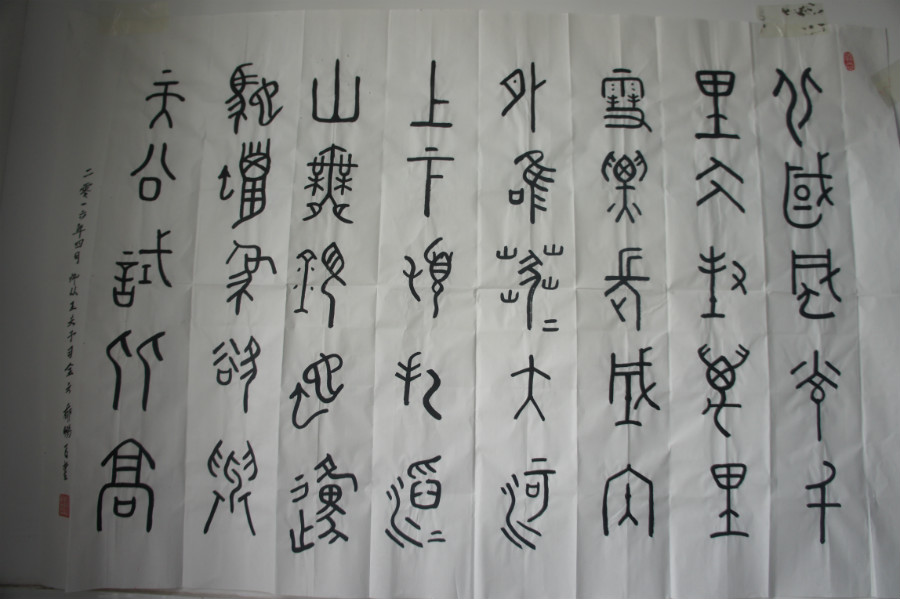 北國風光千
里冰封萬里
雪飄長城內
外唯莽〻大河
上下頓失滔〻
山舞銀蛇原
馳蠟象欲與
天公試比高
二零一六年四月